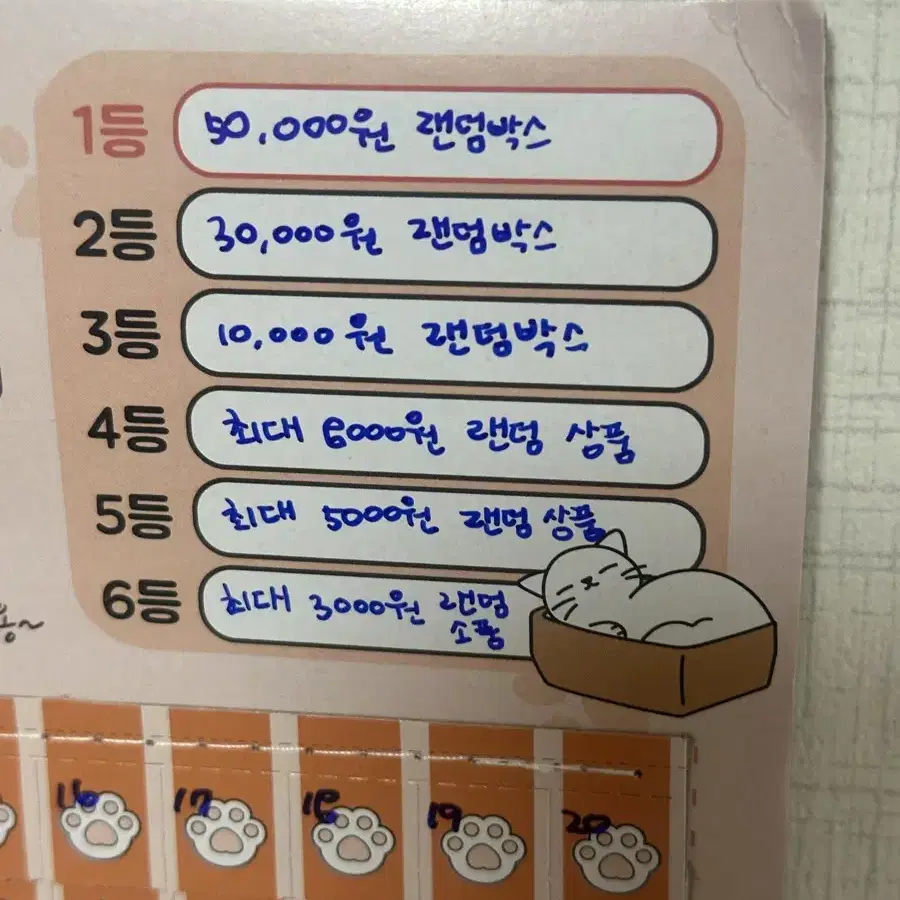 1등 50,000원 랜덤박스
2등 30,000원 랜덤박스
3등 10,000원 랜덤박스
4등 최대 6000원 랜덤 상품
5등 최대 5000원 랜덤 상품
6등 최대 3000원 랜덤
소품
16 17 18 19 20